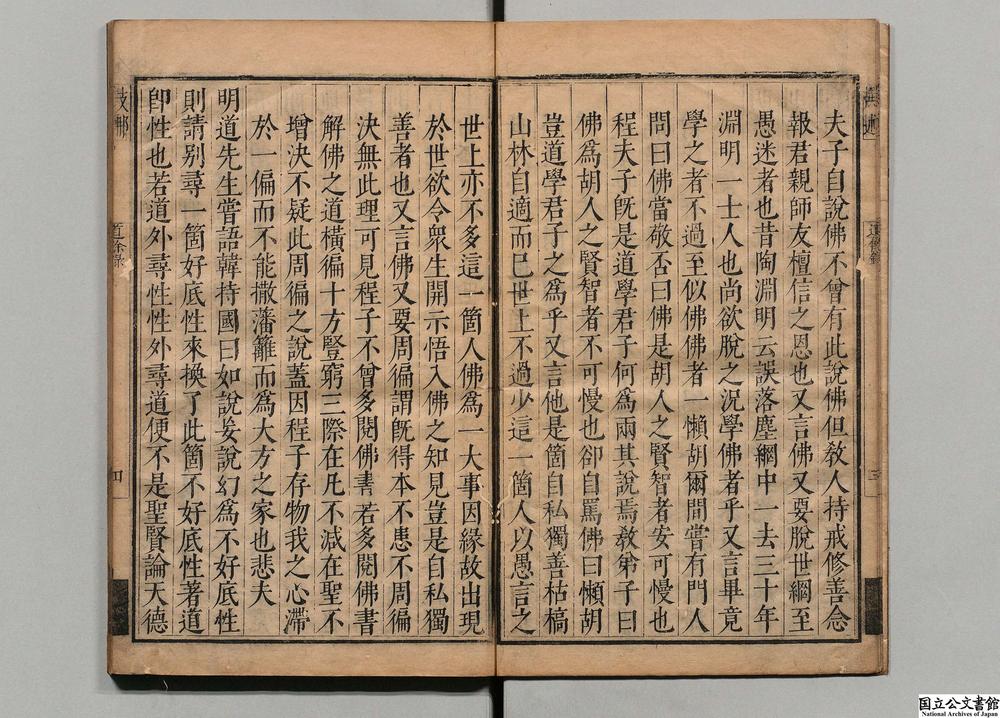 夫子自說佛不曾有此說佛但敎人持戒修善念
報君親師友檀信之恩也又言佛又要脫世網至
愚迷者也昔陶淵明云誤落塵網中一去三十年
淵明一士人也尚欲脫之況學佛者乎又言畢竟
學之者不過至似佛佛者一懶胡爾間嘗有門人
問曰佛當敬否曰佛是胡人之賢智者安可慢也
程夫子旣是道學君子何爲兩其說焉敎弟子曰
佛爲胡人之賢智者不可慢也卻自罵佛曰懶胡
豈道學君子之爲乎又言他是箇自私獨善枯槁
山林自適而已世上不過少這一箇人以愚言之
世上亦不多這一箇人佛爲一大事因緣故出現
於世欲令衆生開示悟入佛之知見豈是自私獨
善者也又言佛又要周徧謂旣得本不患不周徧
決無此理可見程子不曾多閱佛書若多閱佛書
解佛之道橫徧十方豎窮三際在凡不減在聖不
增決不疑此周徧之說蓋因程子存物我之心滯
於一偏而不能撒藩籬而爲大方之家也悲夫
明道先生嘗語韓持國曰如說妄說幻爲不好底性
則請别尋一箇好底性來換了此箇不好底性著道
卽性也若道外尋性性外尋道便不是聖賢論天德
道餘錄
三
道餘錄
四
国立公文書館
National Archives of Japan